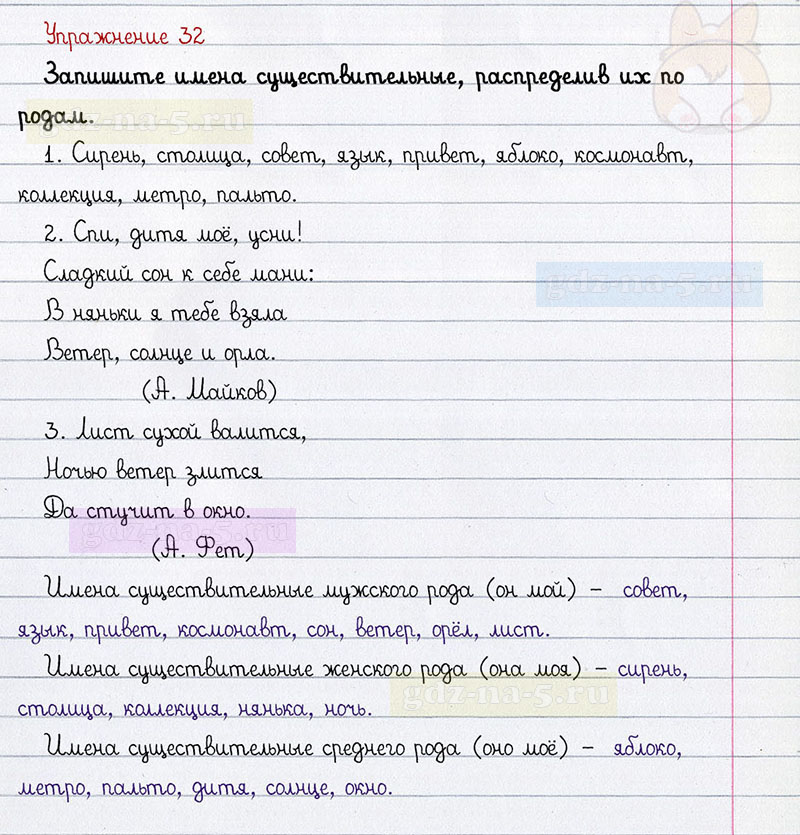 Упражнение 32
Запишите имена существительные, распределив их по
родам.
gdz-na-5.ru
1. Сирень, столица, совет, язык, привет, яблоко, космонавт,
коллекция, метро, пальто.
2. Спи, дитя моё, усни!
Сладкий сон к себе мани:
gdz-na-5.ru
В няньки я тебе взяла
Ветер, солнце и орла.
(А. Майков)
3. Лист сухой валится,
Ночью ветер злится
Да стучит в окно.
gdz-na-5.ru
(А. Фет)
Имена существительные мужского рода (он мой) – совет,
язык, привет, космонавт, сон, ветер, орёл, лист.
Имена существительные женского рода (она моя) – сирень,
gdz-na-5.ru
столица, коллекция, нянька, ночь.
Имена существительные среднего рода (оно моё) – яблоко,
метро, пальто, дитя, солнце, окно.